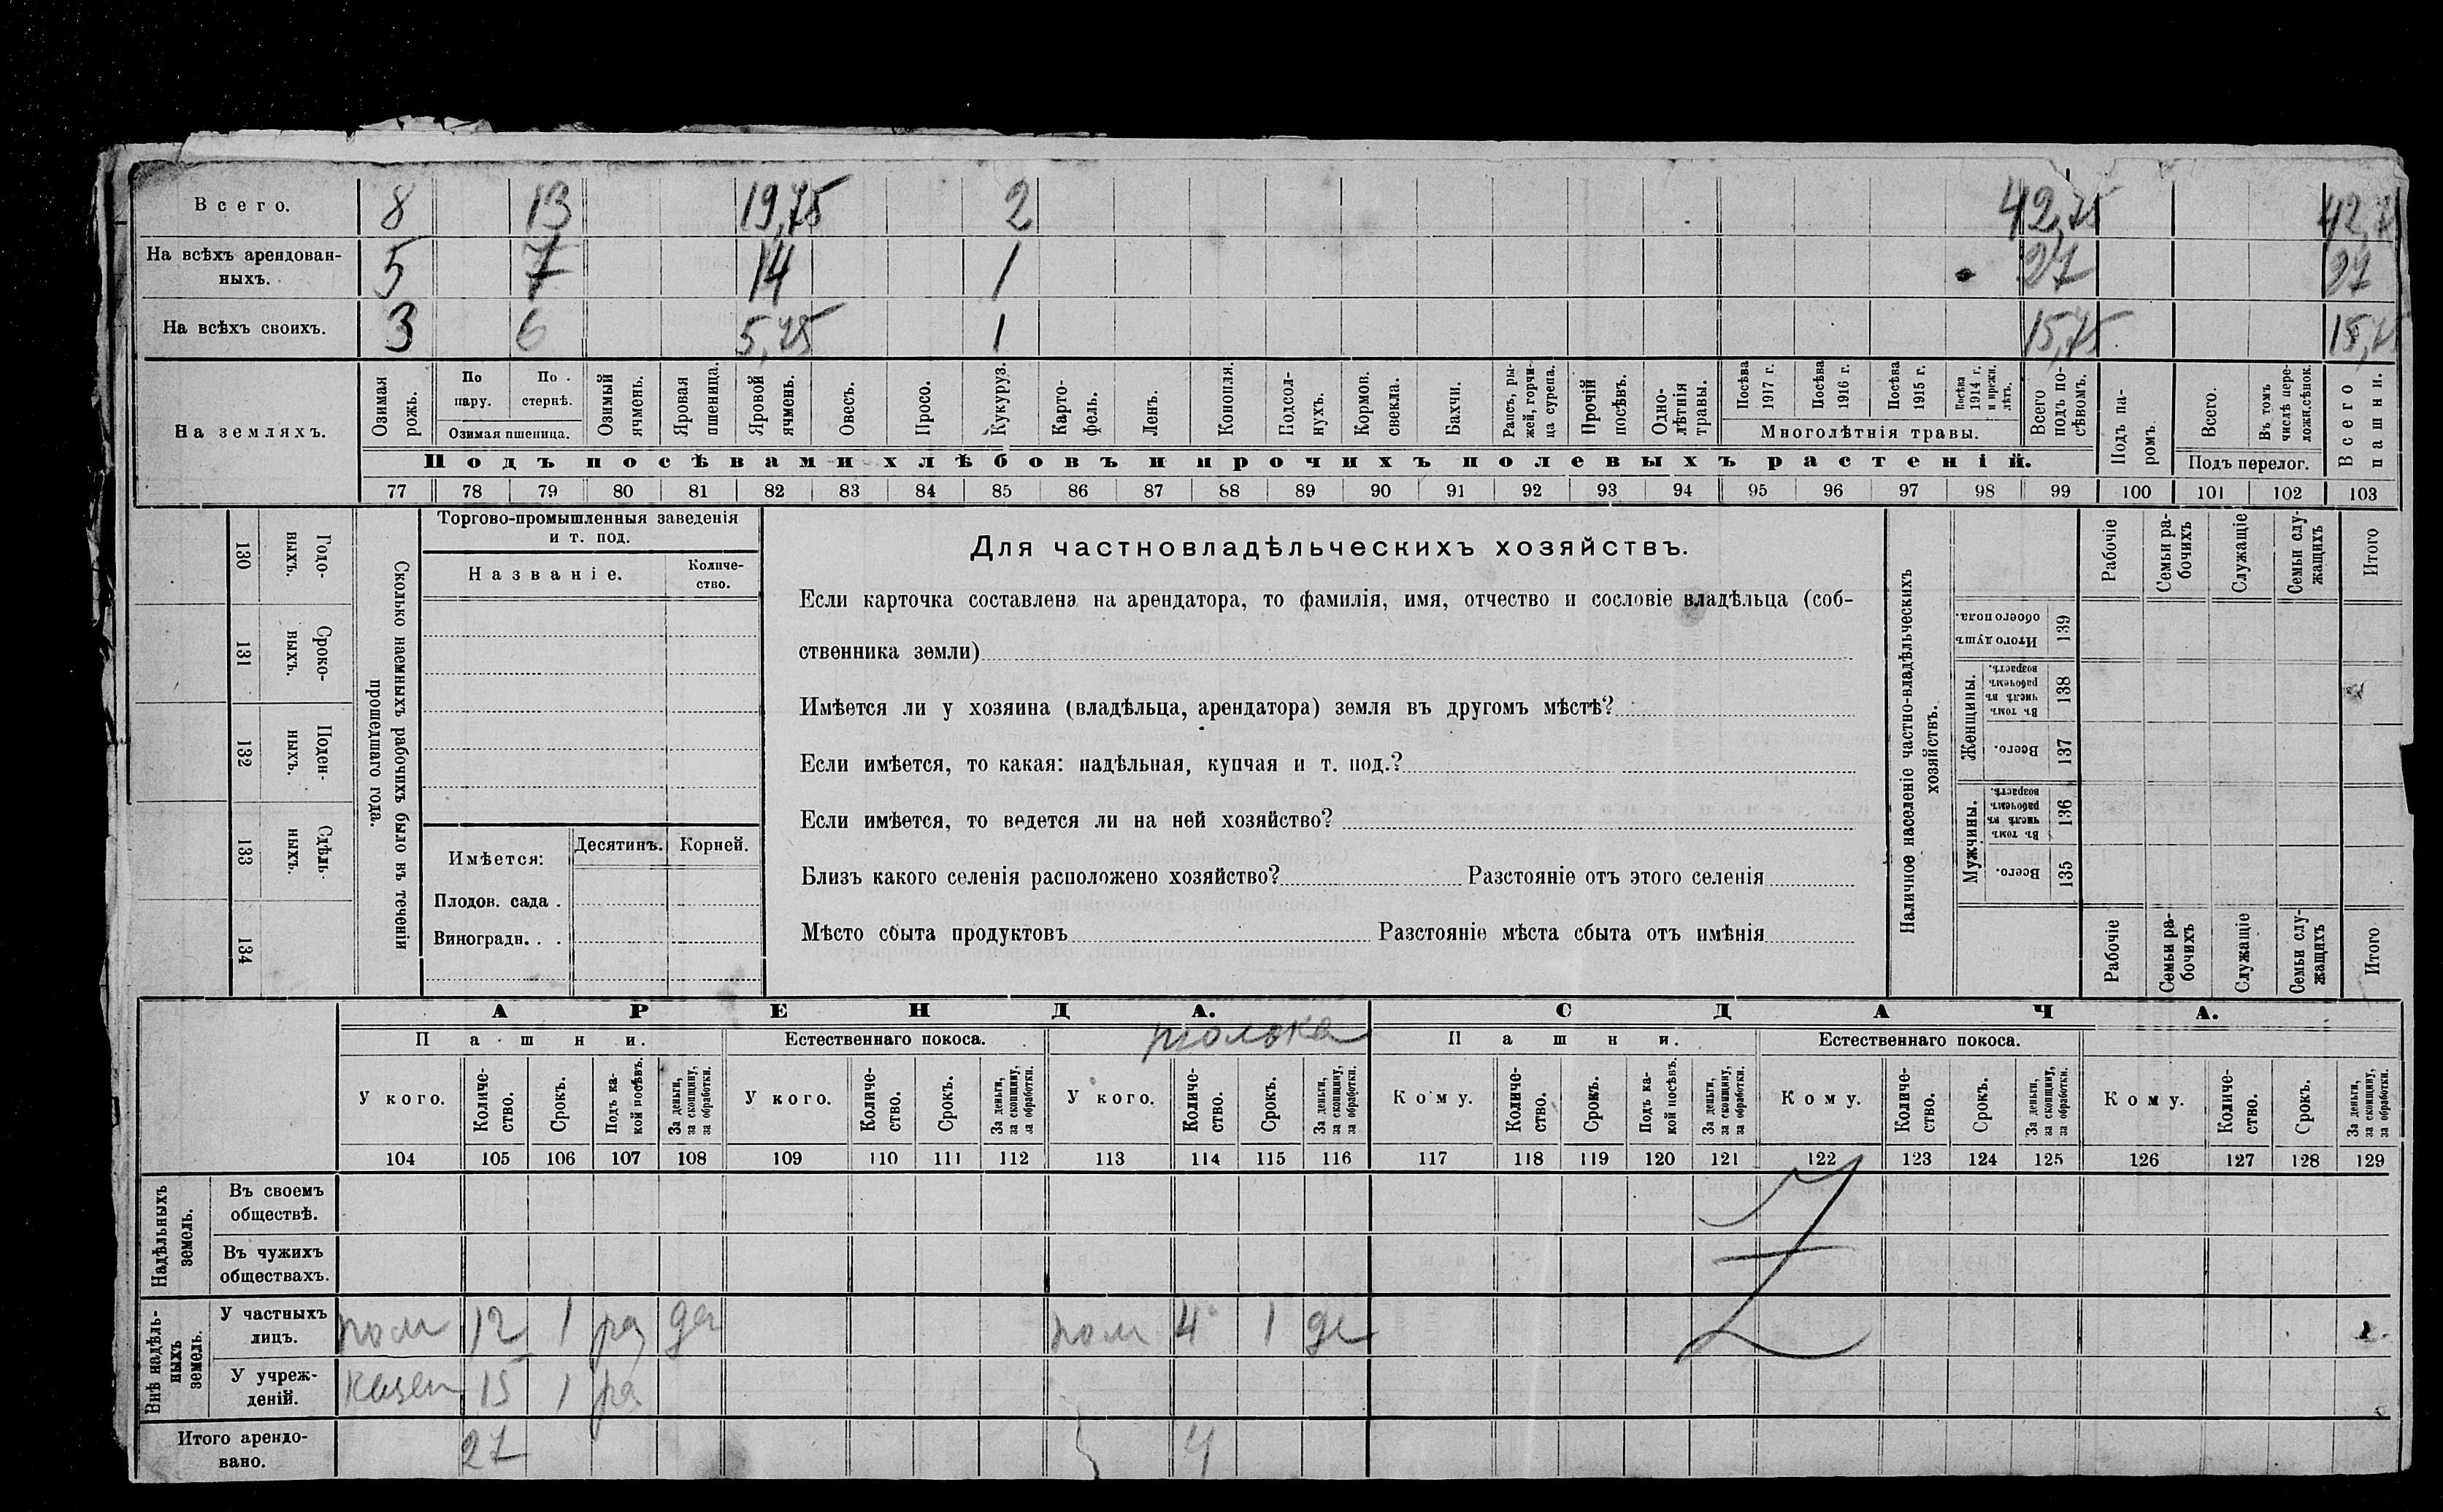 Всего. 8 13 19,75 2 42,75 42,75
На всѣхъ арендован-
ныхъ. 5 7 14 1 27 27
На всѣхъ своихъ. 3 6 5,75 1 15,75 15,75
На земляхъ.
Озимая рожь.
По пару.
По стернѣ.
Озимая пшеница.
Озимый ячмень.
Яровая пшеница.
Яровой ячмень.
Овесъ.
Просо.
Кукуруз.
Карто-
фель.
Ленъ.
Конопля.
Подсол-
нухъ.
Кормов. свекла.
Бахчи.
Рапсъ, ры-
жей, горчи-
ца сурепа.
Прочій посѣвъ.
Одно-
лѣтнія травы.
Посѣва 1917 г.
Посѣва 1916 г.
Посѣва 1915 г.
Посѣва 1914 г. и прежн. лѣтъ.
Многолѣтнія травы.
Всего подъ по-
сѣвомъ.
Подъ па-
ромъ.
Всего.
Въ томъ числѣ пере-
ложн.сѣнок.
Подъ перелог.
Всего пашни.
Подъ посѣвами хлѣбовъ и прочихъ полевыхъ растеній.
77 78 79 80 81 82 83 84 85 86 87 88 89 90 91 92 93 94 95 96 97 98 99 100 101 102 103
130 Годо-
выхъ.
131 Сроко-
выхъ.
132 Поден-
ныхъ.
133 Сдѣль-
ныхъ.
134
Сколько наемныхъ рабочихъ было въ теченіи
прошедшаго года.
Торгово-промышленныя заведенія
и т. под.
Названіе.
Количе-
ство.
Имѣется:
Десятинъ. Корней.
Плодов. сада .
Виноградн. . .
Для частновладѣльческихъ хозяйствъ.
Если карточка составлена на арендатора, то фамилія, имя, отчество и сословіе владѣльца (соб-
ственника земли)
Имѣется ли у хозяина (владѣльца, арендатора) земля въ другомъ мѣстѣ?
Если имѣется, то какая: надѣльная, купчая и т. под.?
Если имѣется, то ведется ли на ней хозяйство?
Близъ какого селенія расположено хозяйство? Разстояніе отъ этого селенія
Мѣсто сбыта продуктовъ Разстояніе мѣста сбыта отъ имѣнія
Наличное населеніе частно-владѣльческихъ
хозяйствъ.
Рабочіе
Семьи ра-
бочихъ
Служащіе
Семьи слу-
жащихъ
Итого
Итого душъ обоего пола. 139
Женщины.
Въ томъ числѣ въ рабочемъ возрастѣ. 138
Всего. 137
Мужчины.
Въ томъ числѣ въ рабочемъ возрастѣ. 136
Всего. 135
Рабочіе
Семьи ра-
бочихъ
Служащіе
Семьи слу-
жащихъ
Итого
АРЕНДА. СДАЧА.
Пашни. Естественнаго покоса. толока Пашни. Естественнаго покоса.
У кого.
Количе-
ство.
Срокъ.
Подъ ка-
кой посѣвъ.
За деньги, за скопщину, за обработки.
У кого.
Количе-
ство.
Срокъ.
За деньги, за скопщину, за обработки.
У кого.
Количе-
ство.
Срокъ.
За деньги, за скопщину, за обработки.
Кому.
Количе-
ство.
Срокъ.
Подъ ка-
кой посѣвъ.
За деньги, за скопщину, за обработки.
Кому.
Количе-
ство.
Срокъ.
За деньги, за скопщину, за обработки.
Кому.
Количе-
ство.
Срокъ.
За деньги, за скопщину, за обработки.
104 105 106 107 108 109 110 111 112 113 114 115 116 117 118 119 120 121 122 123 124 125 126 127 128 129
Надѣльныхъ
земель.
Въ своемъ
обществѣ.
Въ чужихъ
обществахъ.
Внѣ надѣль-
ныхъ
земель.
У частныхъ
лицъ. пом 12 1 ра де пом 4 1 де
У учреж-
деній. казен 15 1 ра
Итого арендо-
вано. 27 4